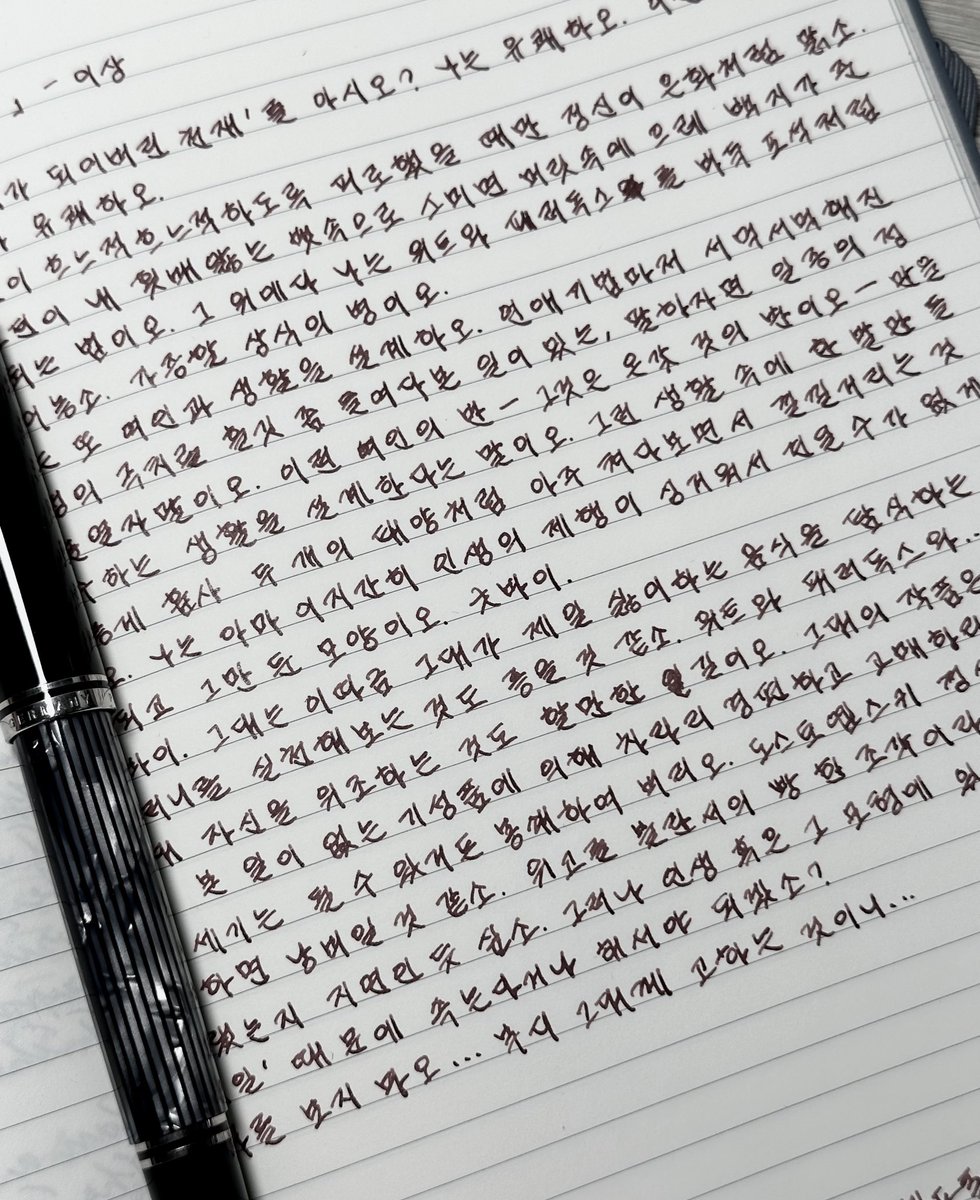 」 - 이상
가 되어버린 천재'를 아시오? 나는 유쾌하오.
유쾌하오.
이 흐느적흐느적하도록 피로했을 때만 정신이 은화처럼 맑소.
내 횟배앓는 뱃속으로 스미면 머릿속에 으레 백지가 준
되는 법이오. 그 위에다 나는 위트와 패러독스를 바둑 포석처럼
가증할 상식의 병이오.
또 여인과 생활을 설계하오. 연애기법마저 서먹서먹해진
의 극치를 흘깃 좀 들여다본 일이 있는, 말하자면 일종의 정
말이오. 이런 여인의 반 - 그것은 온갖 것의 반이오 - 만을
하는 생활을 설계한다는 말이오. 그런 생활 속에 한 발만 들
흡사 두 개의 태양처럼 아주 쳐다보면서 낄낄거리는 것
나는 아마 어지간히 인생의 제행이 싱거워서 견딜 수가 없게
되고 그만 둔 모양이오. 굿바이.
바이. 그대는 이따금 그대가 제일 싫어하는 음식을 탐식하는
러니를 실천해보는 것도 좋을 것 같소. 위트와 패러독스와...
자신을 위조하는 것도 할만한 일이오. 그대의 작품은
본 일이 없는 기성품에 의해 차라리 경편하고 고매하
세기는 될 수 있거든 봉쇄하여 버리오. 도스토옙스키 정
하면 낭비일 것 같소. 위고를 불란서의 빵 한 조각이라
지언인 듯 싶소. 그러나 인생 혹은 그 모형에 있
일' 때문에 속는다거나 해서야 되겠소?
를 보지 마오... 부디 그대께 고하는 것이니...